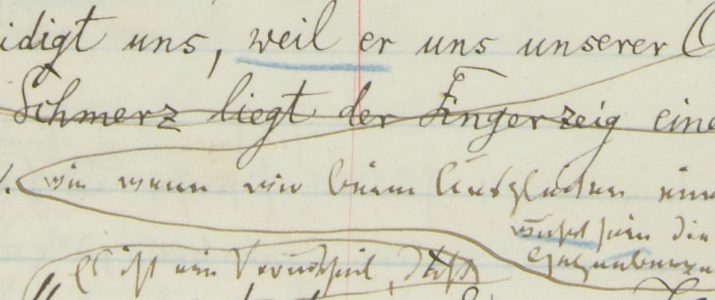 idigt uns, weil er uns unserer
Schmerz liegt der Fingerzeig eine
wie wenn wir beim Ausgleiten ein
die
es ist ein Vorurtheil, daß